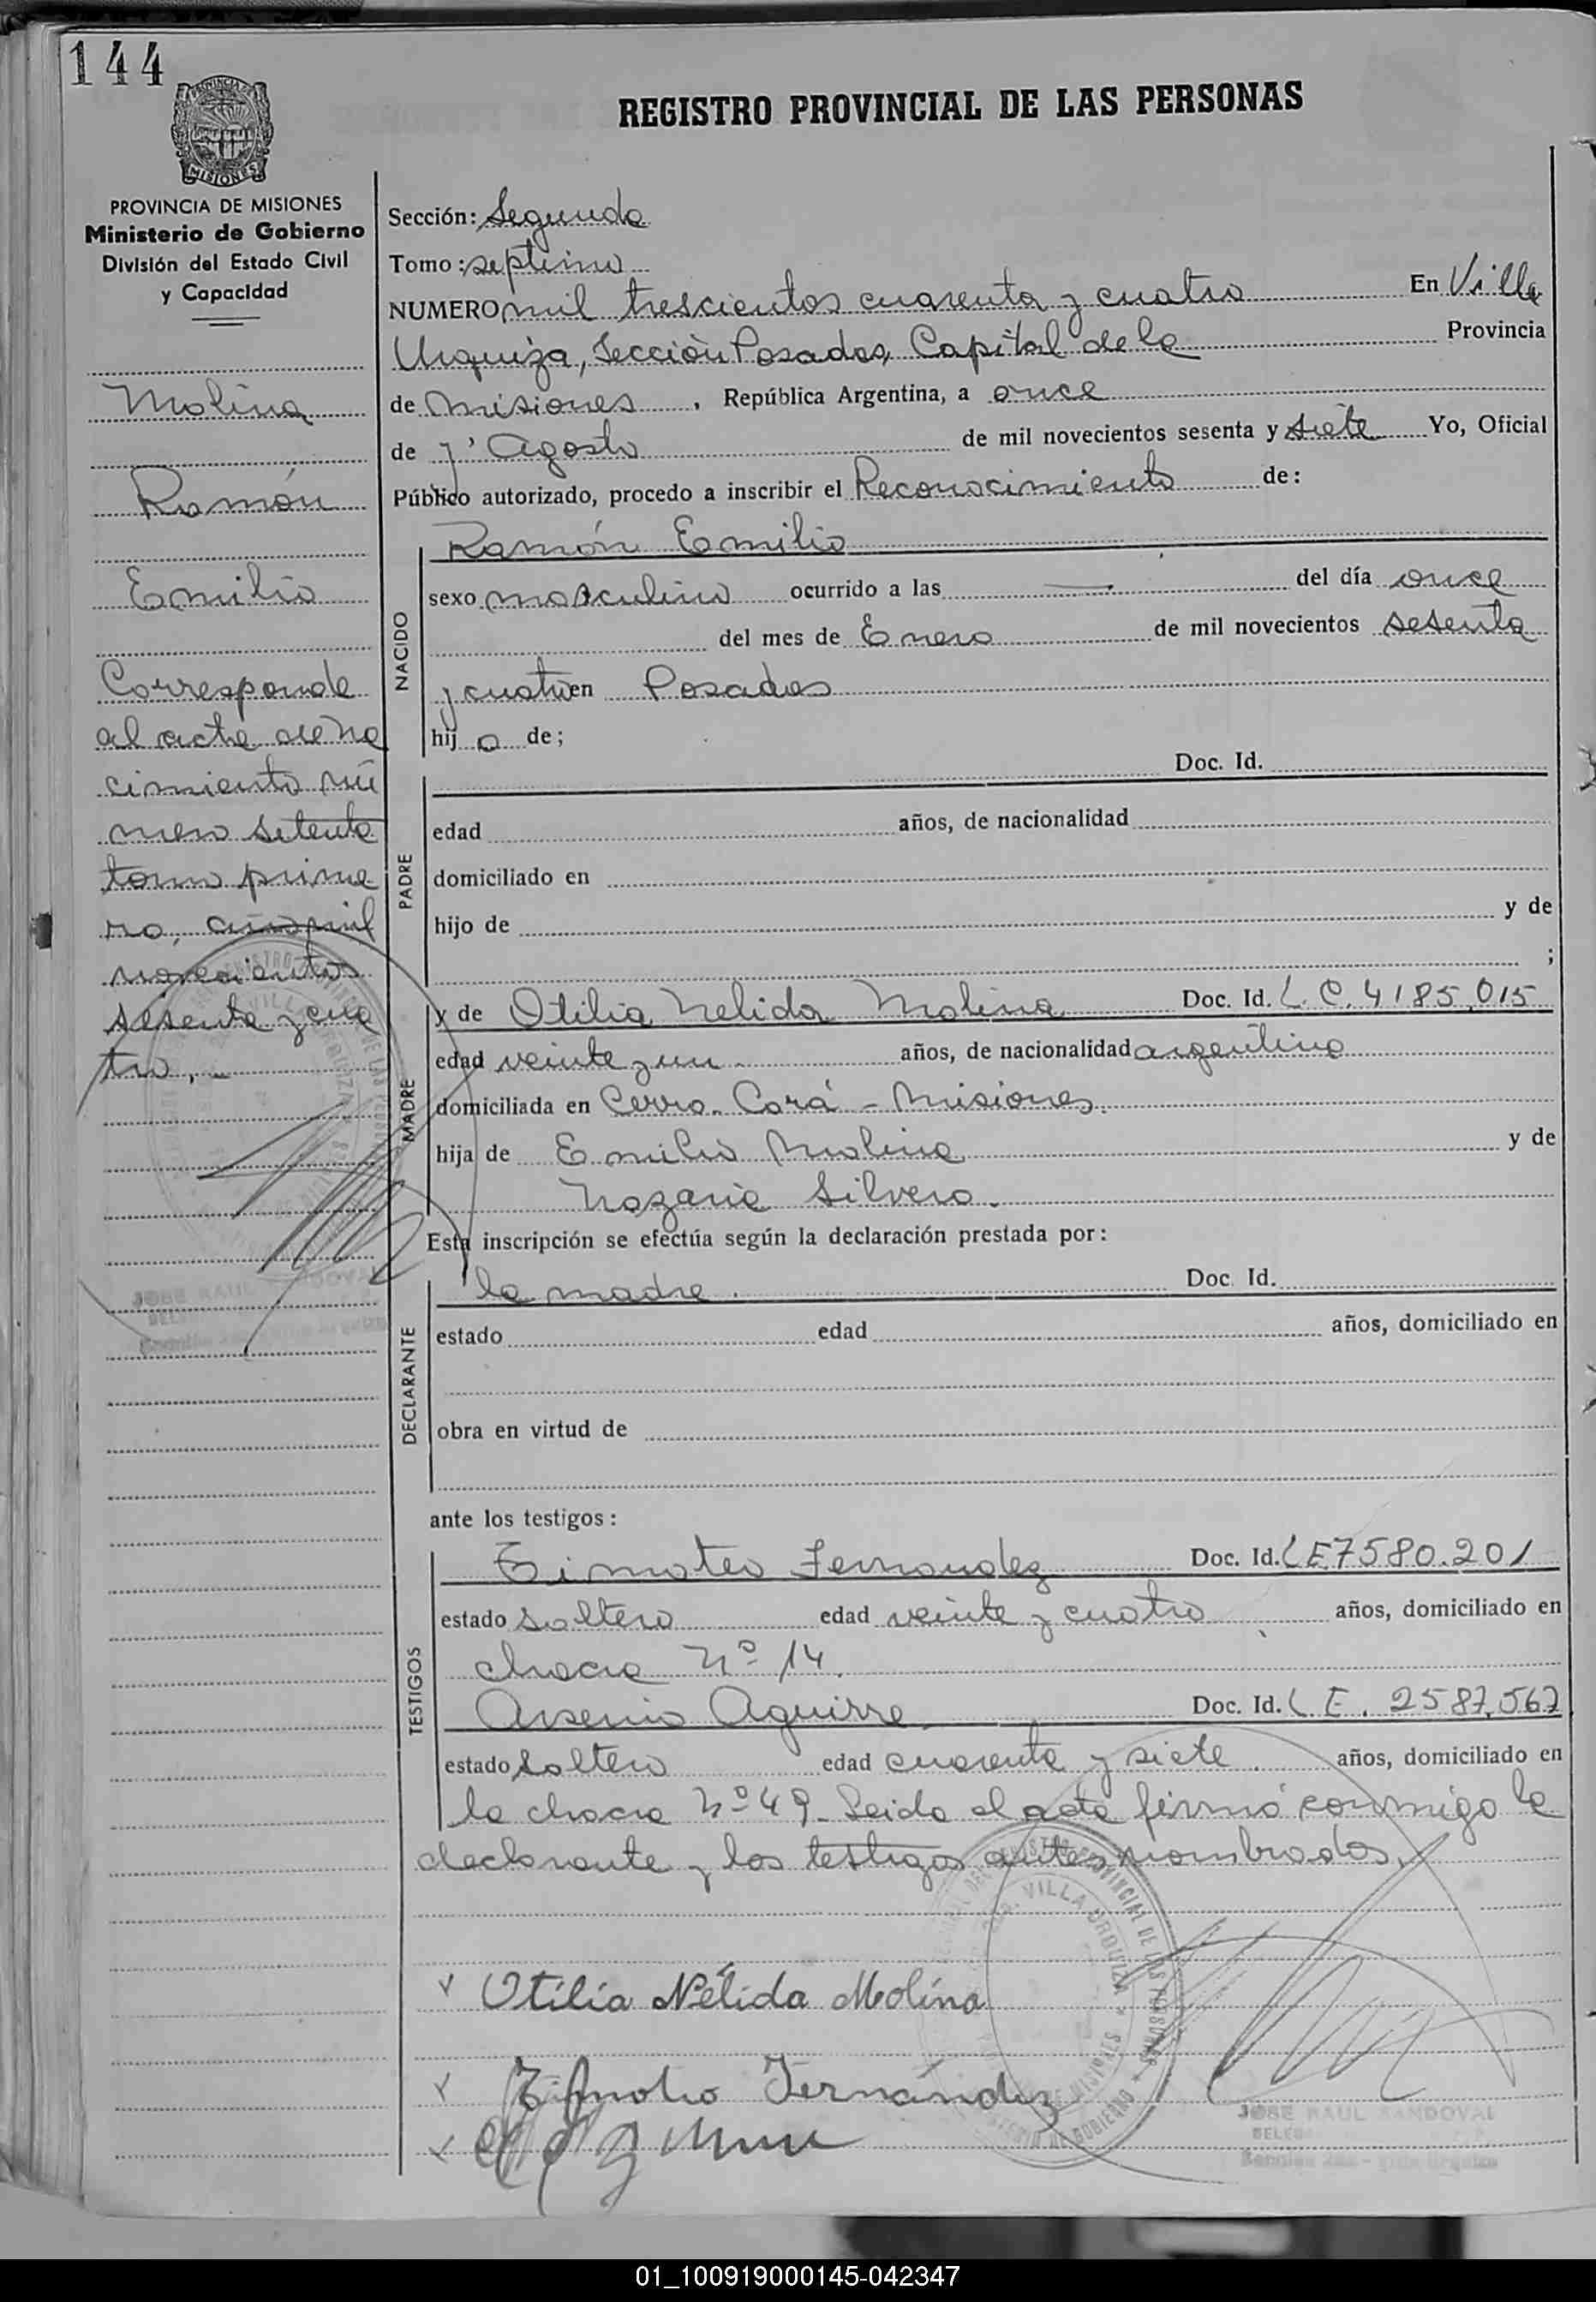 144
PROVINCIA DE MISIONES
Ministerio de Gobierno
División del Estado Civil
y Capacidad
REGISTRO PROVINCIAL DE LAS PERSONAS
Molina
Ramón
Emilio
Corresponde
al acta de na
cimiento nú
mero setenta
tomo prime
ro, año mil
novecientos
sesenta y cua
tro.-
Sección: Segunda
Tomo: septimo
NUMERO mil trescientos cuarenta y cuatro En Villa
Urquiza, Sección Posadas, Capital de la Provincia
de Misiones, República Argentina, a once
de Agosto de mil novecientos sesenta y siete Yo, Oficial
Público autorizado, procedo a inscribir el Reconocimiento de:
NACIDO
Ramón Emilio
sexo masculino ocurrido a las — del día once
del mes de Enero de mil novecientos sesenta
y cuatro en Posadas
hij o de;
PADRE
Doc. Id.
edad años, de nacionalidad
domiciliado en
hijo de y de
;
MADRE
y de Otilia Nelida Molina Doc. Id. L.C. 4185.015
edad veinte y un años, de nacionalidad argentina
domiciliada en Cerro Corá - Misiones
hija de Emilio Molina y de
Nazaria Silvero.
Esta inscripción se efectúa según la declaración prestada por:
DECLARANTE
la madre. Doc. Id.
estado edad años, domiciliado en
obra en virtud de
ante los testigos:
TESTIGOS
Timoteo Fernandez Doc. Id. L E 7580.201
estado soltero edad veinte y cuatro años, domiciliado en
chacra Nº 14.
Arsenio Aguirre Doc. Id. L E. 2587.567
estado soltero edad cuarenta y siete años, domiciliado en
la chacra Nº 49- Leida el acta firmó conmigo la
declarante y los testigos antes nombrados.
Otilia Nélida Molina
Timoteo Fernández
JOSE RAUL SANDOVAL
01_100919000145-042347